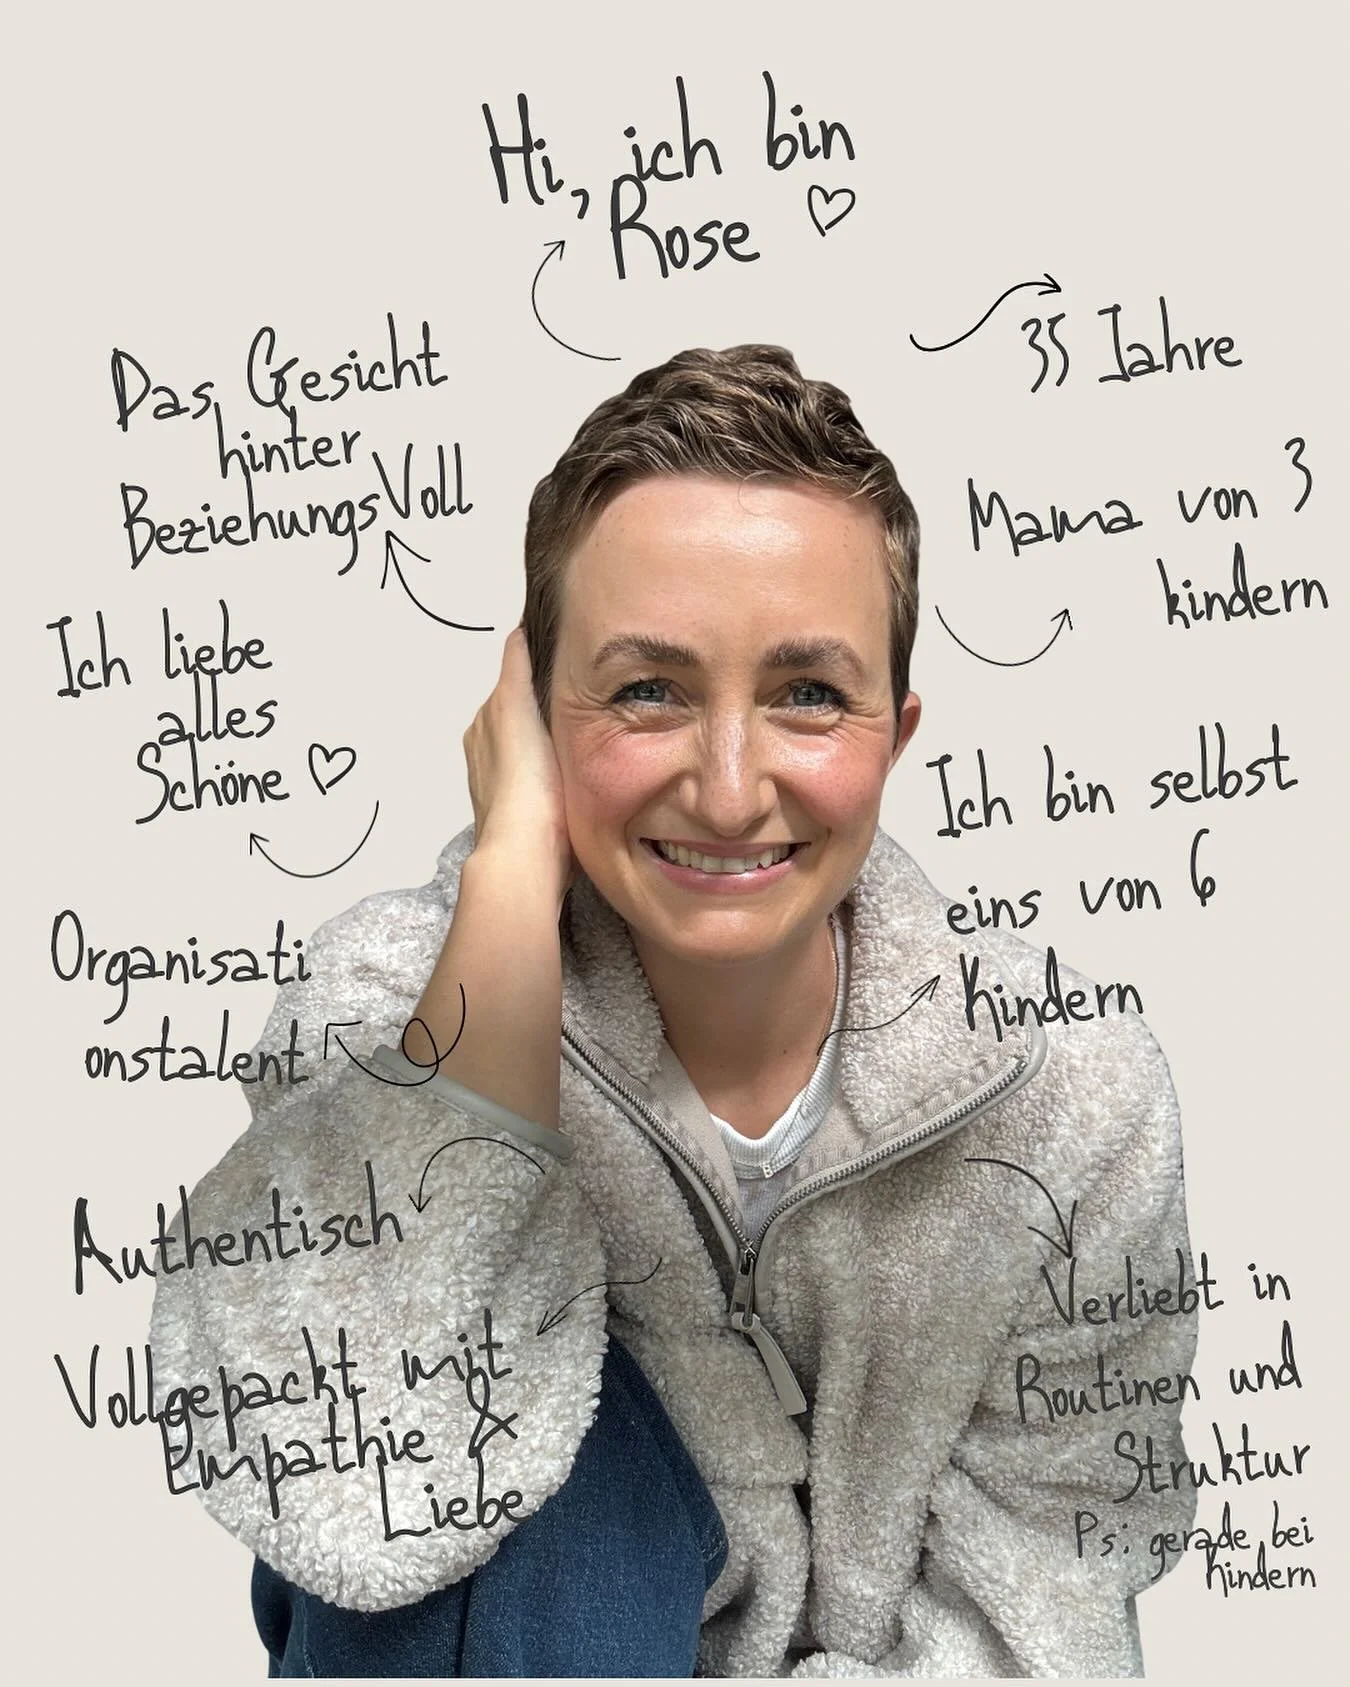 Hi, ich bin
Rose ♡
35 Jahre
Das Gesicht
hinter
BeziehungsVoll
Mama von 3
kindern
Ich liebe
alles
Schöne ♡
Ich bin selbst
eins von 6
Kindern
Organisati
onstalent
Authentisch
Vollgepackt mit
Empathie &
Liebe
Verliebt in
Routinen und
Struktur
Ps: gerade bei
kindern